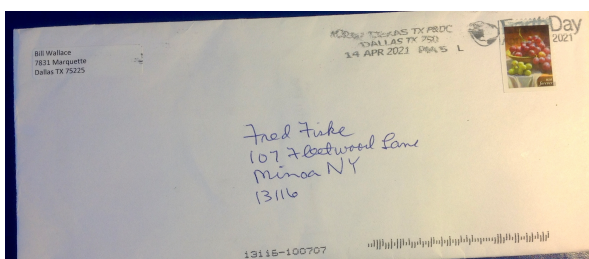 Bill Wallace
7831 Marquette
Dallas TX 75225
NORTH TEXAS TX P&DC
DALLAS TX 750
14 APR 2021 PM 5 L
EarthDay
2021
Fred Fiske
107 Fleetwood Lane
Minoa NY
13116
13116-100707